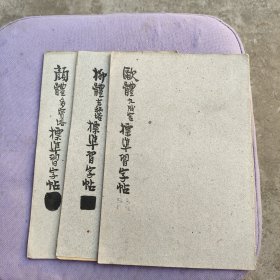 歐體九成宮標準習字帖
柳體玄秘塔標準習字帖
顏體多寶塔標準習字帖